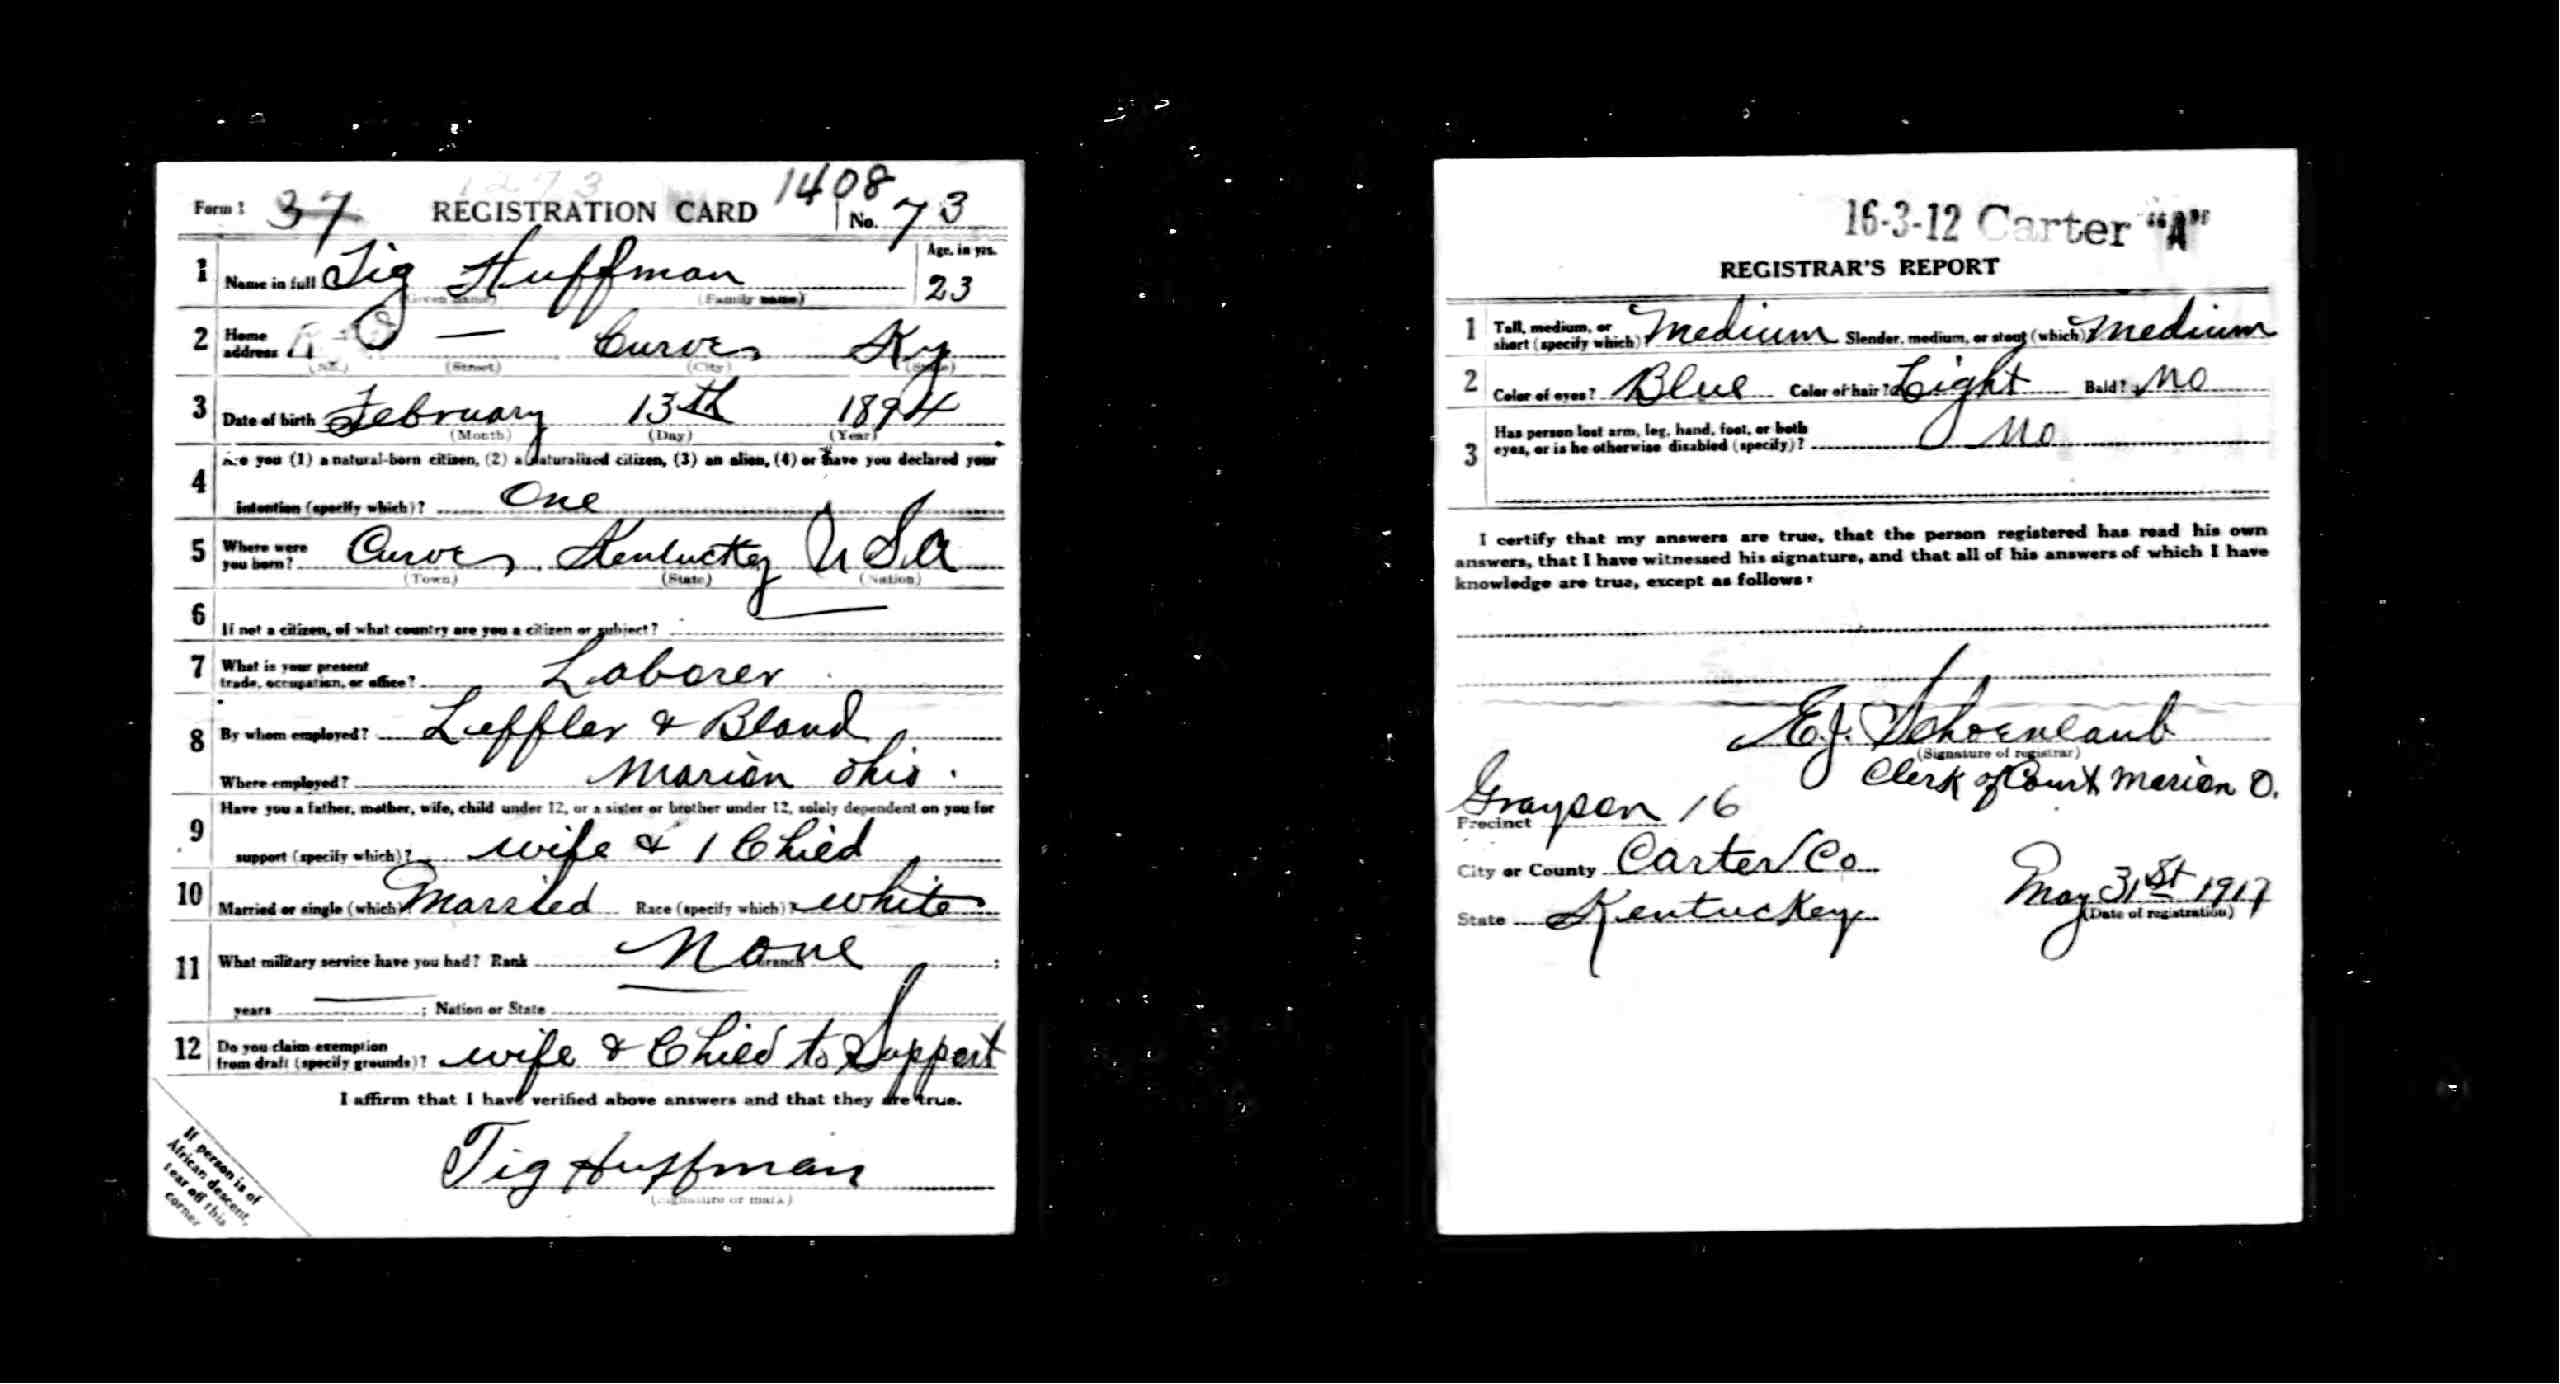 1273
1408
Form 1 37 REGISTRATION CARD No. 73
1 Name in full Tig Huffman Age, in yrs. 23
(Given name) (Family name)
2 Home address — Curves Ky
(No.) (Street) (City) (State)
3 Date of birth February 13th 1894
(Month) (Day) (Year)
4 Are you (1) a natural-born citizen, (2) a naturalized citizen, (3) an alien, (4) or have you declared your
intention (specify which)? One
5 Where were you born? Curves Kentucky USA
(Town) (State) (Nation)
6 If not a citizen, of what country are you a citizen or subject? —
7 What is your present trade, occupation, or office? Laborer
8 By whom employed? Leffler & Bland
Where employed? Marion Ohio.
9 Have you a father, mother, wife, child under 12, or a sister or brother under 12, solely dependent on you for
support (specify which)? wife & 1 Child
10 Married or single (which)? Married Race (specify which)? white
11 What military service have you had? Rank None branch ;
years — ; Nation or State —
12 Do you claim exemption from draft (specify grounds)? wife & Child to Support
I affirm that I have verified above answers and that they are true.
Tig Huffman
(Signature or mark)
If person is of
African descent,
tear off this
corner
16-3-12 Carter "A"
REGISTRAR'S REPORT
1 Tall, medium, or short (specify which)? Medium Slender, medium, or stout (which)? Medium
2 Color of eyes? Blue Color of hair? Light Bald? No
3 Has person lost arm, leg, hand, foot, or both
eyes, or is he otherwise disabled (specify)? No
I certify that my answers are true, that the person registered has read his own
answers, that I have witnessed his signature, and that all of his answers of which I have
knowledge are true, except as follows:
E.J. Schoenlaub
(Signature of registrar)
Clerk of Court Marion O.
Precinct Grayson 16
City or County Carter Co.
State Kentucky May 31st 1917
(Date of registration)